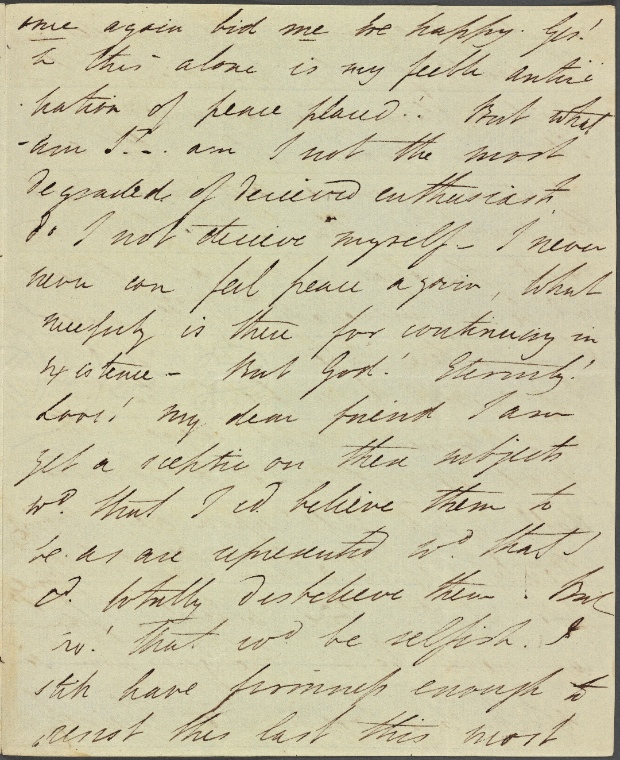 once again bid me be happy. Yes!
in this alone is my feeble antici
pation of peace placed!. But what
am I?-. am I not the most
degraded of deceived enthusiasts
do I not deceive myself- I never
never can feel peace again, What
necessity is there for continuing in
existence- But God! Eternity!
Love! my dear friend I am
yet a sceptic on these subjects
wd. that I cd believe them to
be as are represented wd. that I
cd. totally disbelieve them! But
no! that wd be selfish. I
still have firmness enough to
resist this last this most